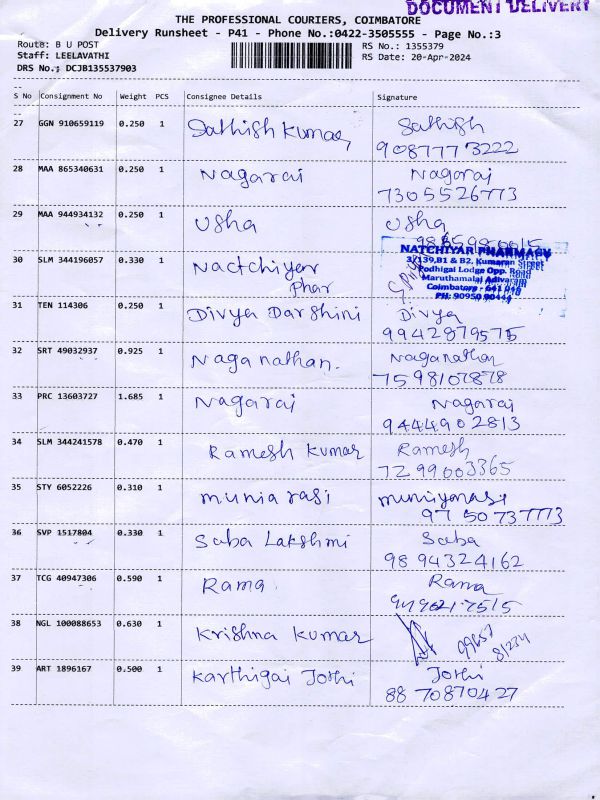 DOCUMENT DELIVERY
THE PROFESSIONAL COURIERS, COIMBATORE
Delivery Runsheet - P41 - Phone No.:0422-3505555 - Page No.:3
Route: B U POST
Staff: LEELAVATHI
DRS No.; DCJB135537903
RS No.: 1355379
RS Date: 20-Apr-2024
S No Consignment No Weight PCS Consignee Details Signature
27 GGN 910659119 0.250 1 Sathish kumar, Sathish
9087773222
28 MAA 865340631 0.250 1 Nagaraj Nagaraj
7305526773
29 MAA 944934132 0.250 1 Usha Usha
30 SLM 344196057 0.330 1 Nactchiyar
Phar
NATCHIYAR PHARMACY
3/139,B1 & B2, Kumaran Street
Podhigai Lodge Opp. Road
Maruthamalai Adivaram
Coimbatore - 641 046
PH: 90950 90444
31 TEN 114306 0.250 1 Divya Darshini Divya
9942879575
32 SRT 49032937 0.925 1 Naganathan. Naganathan
7598107878
33 PRC 13603727 1.685 1 Nagaraj Nagaraj
9444902813
34 SLM 344241578 0.470 1 Ramesh kumar Ramesh
7299003365
35 STY 6052226 0.310 1 muniarasi muniyarasi
9750737773
36 SVP 1517804 0.330 1 Saba Lakshmi Saba
9894324162
37 TCG 40947306 0.590 1 Rama Rama
38 NGL 100088653 0.630 1 Krishna kumar
99657
81234
39 ART 1896167 0.500 1 Karthigai Jothi Jothi
8870870427